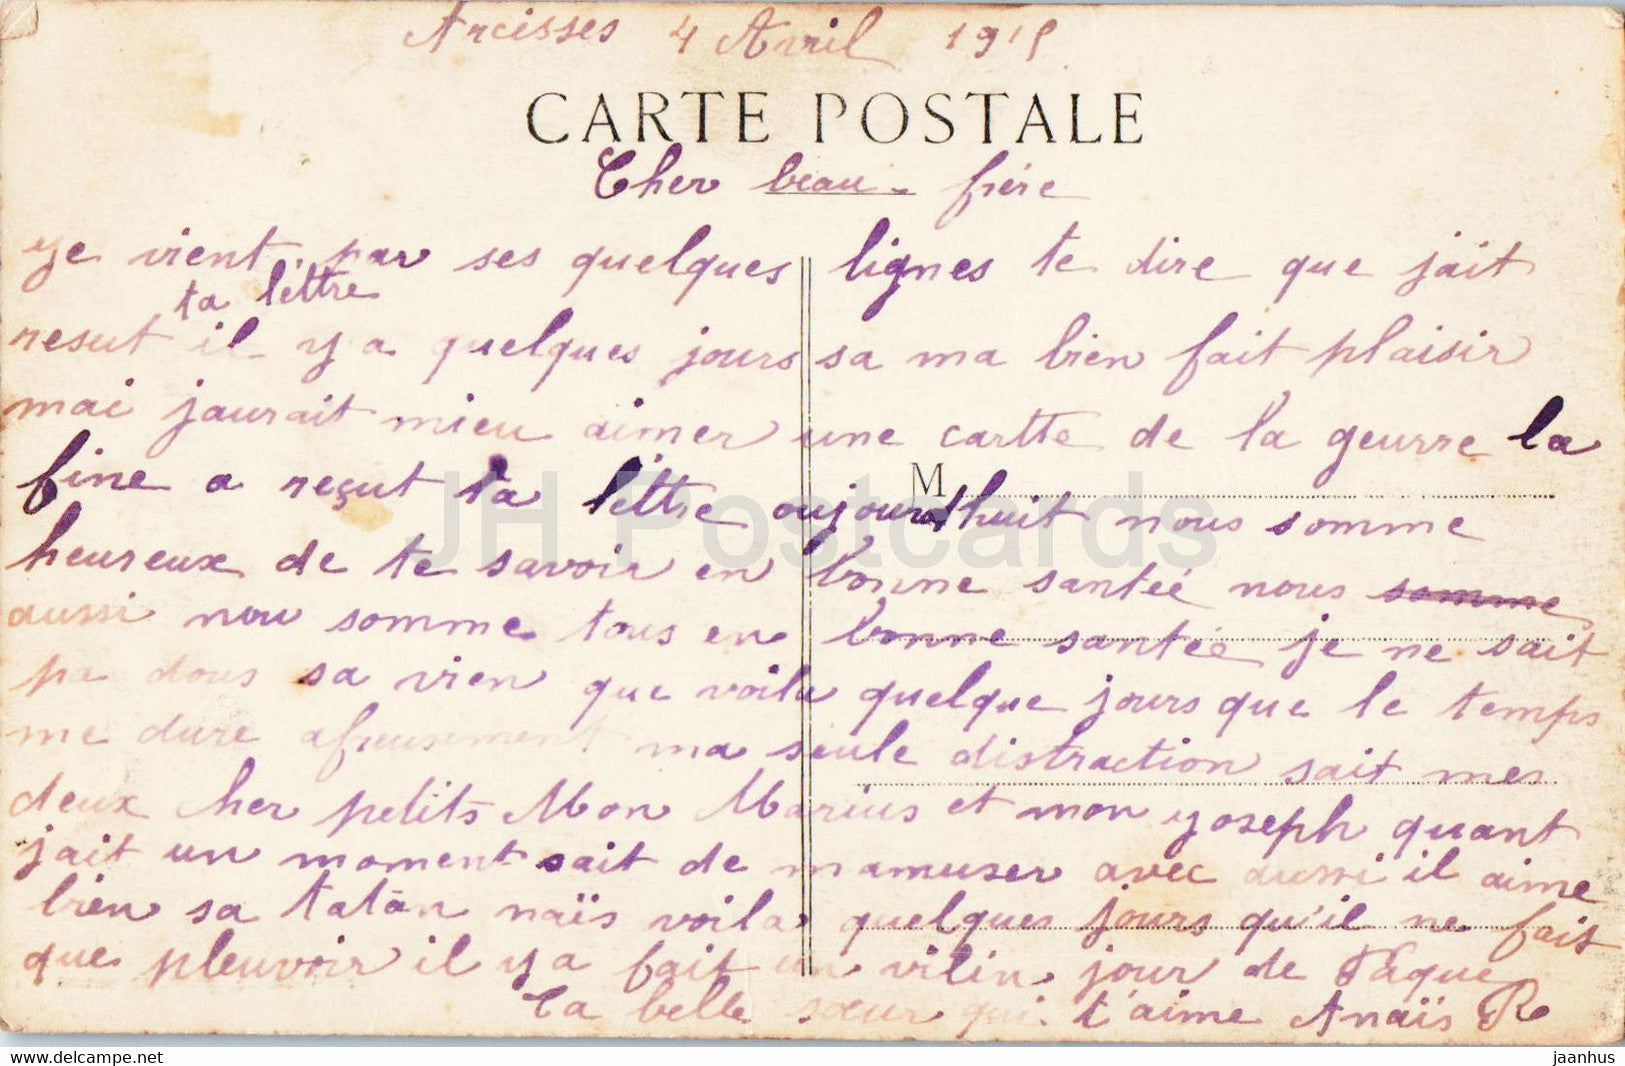 Arcisses 4 Avril 1915
CARTE POSTALE
Cher beau-frère
ye vient par ses quelques lignes te dire que jait
ta lettre
resut il y a quelques jours sa ma bien fait plaisir
mai jaurait mieu aimer une cartte de la geurre la
fine a reçut ta lettre oujourd'huit nous somme
M
heureux de te savoir en bonne santée nous somme
aussi nou somme tous en bonne santée je ne sait
pa dous sa vien que voila quelque jours que le temps
me dure afreusement ma seule distraction sait mes
deux cher petits Mon Marius et mon yoseph quant
jait un moment sait de mamuser avec aussi il aime
bien sa tatan naïs voila quelques jours qu'il ne fait
que pleuvoir il y a fait un vilin jour de Paque
Ta belle sœur qui t'aime Anaïs R
JH Postcards
jaanhus @ delcampe.net